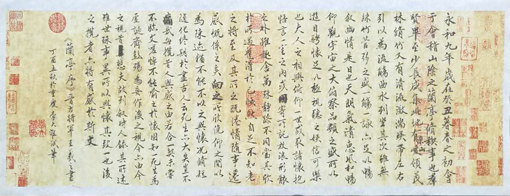 永和九年歲在癸丑暮春之初會
于會稽山陰之蘭亭脩稧事也羣
賢畢至少長咸集此地有崇山峻領茂
林脩竹又有清流激湍暎帶左右
引以為流觴曲水列坐其次雖無
絲竹管弦之盛一觴一詠亦足以暢
敘幽情是日也天朗氣清惠風和暢
仰觀宇宙之大俯察品類之盛所以
遊目騁懷足以極視聽之娛信可樂
也夫人之相與俯仰一世或取諸懷抱
悟言一室之內或因寄所託放浪形骸
之外雖趣舍萬殊靜躁不同當其欣
於所遇暫得於己快然自足不知老
之將至及其所之既惓情隨事遷
感慨係之矣向之所欣俛仰之間以
為陳迹猶不能不以之興懷況脩短
隨化終期於盡古人云死生亦大矣豈不
痛哉每攬昔人興感之由若合一契未嘗
不臨文嗟悼不能喻之於懷固知一死生為
虛誕齊彭殤為妄作後之視今亦由今
之視昔悲夫故列敘時人錄其所述
雖世殊事異所以興懷其致一也後
之攬者亦將有感於斯文
蘭亭序 晉右將軍王羲之書
丁酉